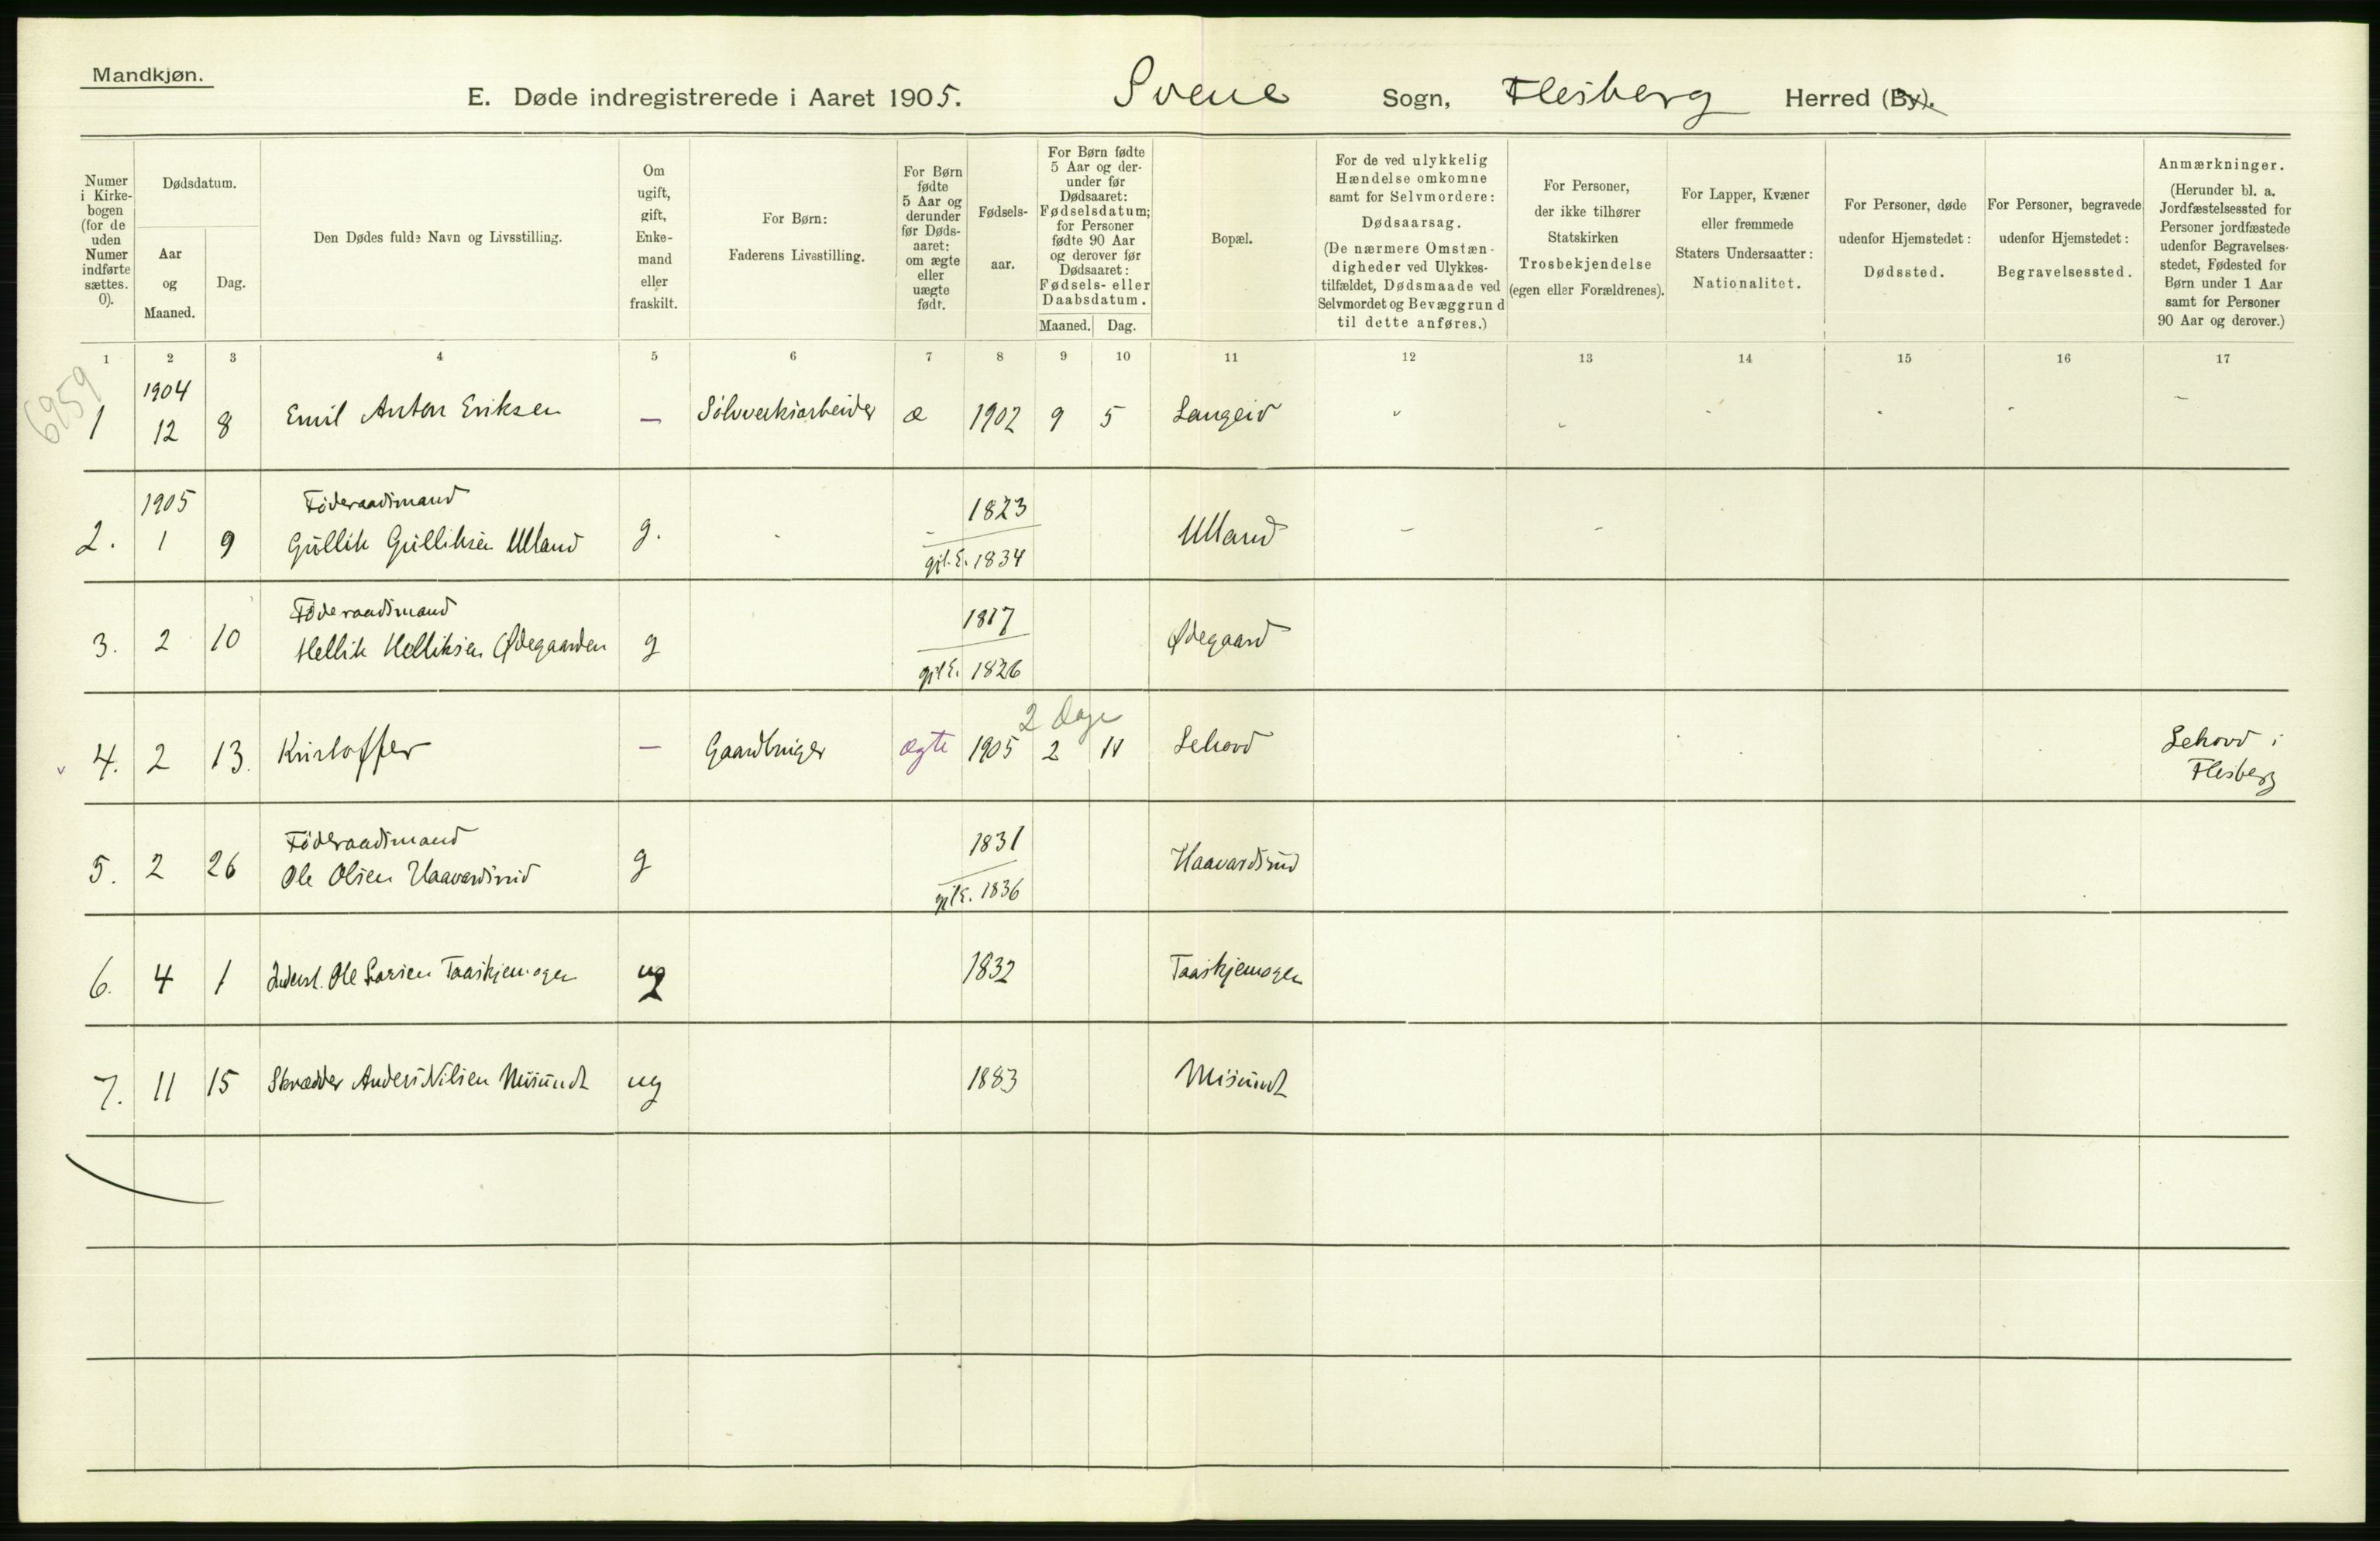 Mandkjøn.
E. Døde indregistrerede i Aaret 1905. Svene Sogn, Flesberg Herred (By).
Numer i Kirkebogen (for de uden Numer indførte sættes. 0).
Dødsdatum.
Aar og Maaned.
Dag.
Den Dødes fulde Navn og Livsstilling.
Om ugift, gift, Enkemand eller fraskilt.
For Børn: Faderens Livsstilling.
For Børn fødte 5 Aar og derunder før Dødsaaret: om ægte eller uægte født.
Fødselsaar.
For Børn fødte 5 Aar og derunder før Dødsaaret: Fødselsdatum; for Personer fødte 90 Aar og derover før Dødsaaret: Fødsels- eller Daabsdatum.
Maaned. Dag.
Bopæl.
For de ved ulykkelig Hændelse omkomne samt for Selvmordere: Dødsaarsag. (De nærmere Omstændigheder ved Ulykkestilfældet, Dødsmaade ved Selvmordet og Bevæggrund til dette anføres.)
For Personer, der ikke tilhører Statskirken Trosbekjendelse (egen eller Forældrenes).
For Lapper, Kvæner eller fremmede Staters Undersaatter: Nationalitet.
For Personer, døde udenfor Hjemstedet: Dødssted.
For Personer, begravede udenfor Hjemstedet: Begravelsessted.
Anmærkninger. (Herunder bl. a. Jordfæstelsessted for Personer jordfæstede udenfor Begravelsesstedet, Fødested for Børn under 1 Aar samt for Personer 90 Aar og derover.)
1 2 3 4 5 6 7 8 9 10 11 12 13 14 15 16 17
6959
1904
1 12 8 Emil Anton Eriksen — Sølvverksarbeider æ 1902 9 5 Langeid
1905 Föderaadsmand 1823
2. 1 9 Gullik Gulliksen Ulland g. - Ulland - -
gjl. E. 1834
Föderaadsmand 1817
3. 2 10 Hellik Helliksen Ødegaarden g Ødegaard
gjl E. 1826
2 Dage
4. 2 13. Kristoffer — Gaardbruger ægte 1905 2 11 Lehovd Lehovd i
Flesberg
Föderaadsmand 1831
5. 2 26 Ole Olsen Haavardsrud g Haavardsrud
gjl E. 1836
6. 4 1 Inderst. Ole Larsen Taaskjemogen ug 1832 Taaskjemogen
7. 11 15 Skrædder Anders Nilsen Misundt ug 1883 Misundt